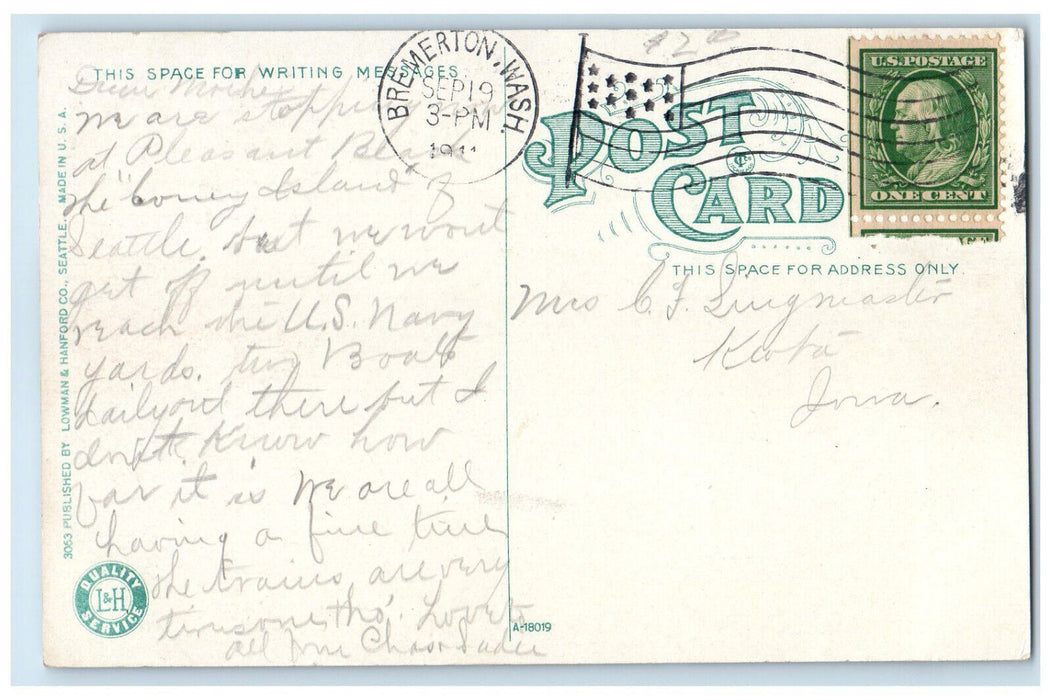 THIS SPACE FOR WRITING MESSAGES
Dear Mother
We are stopping now
at Pleasant Beach
the "Coney Island" of
Seattle. but we wont
get off until we
reach the U.S. Navy
yards. two Boats
daily out there but I
don't know how
far it is We are all
having a fine time
the trains are very
tiresome tho'. Love to
all from Chas & Sadie
BREMERTON, WASH.
SEP 19
3-PM
1911
$2.00
POST
CARD
U.S. POSTAGE
ONE CENT
THIS SPACE FOR ADDRESS ONLY.
Mrs C. F. Singmaster
Keota
Iowa.
3053 PUBLISHED BY LOWMAN & HANFORD CO., SEATTLE. MADE IN U. S. A.
QUALITY
L&H
SERVICE
A-18019